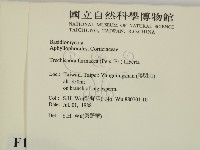 國立自然科學博物館
NATIONAL MUSEUM OF NATURAL SCIENCE
TAICHUNG, TAIWAN, ROC CHINA
Basidiomycota
Aphyllophorales, Corticiaceae
Trechispora farinacea (Pers.: Fr.) Liberta
Loc: Taiwan, Taipei: Yangmingshan
alt.
on branch of angiosperm
Col: S.H. Wu
Date: Jul. 01, 1988
Det: S.H. Wu
F1